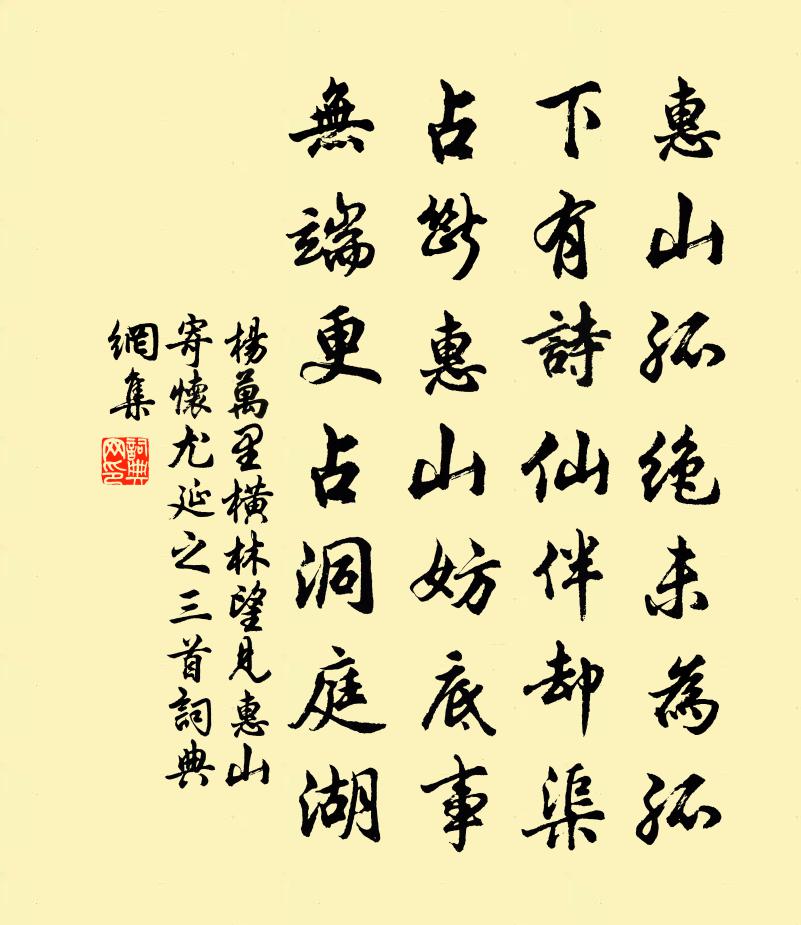 惠山孤絶未為孤
下有詩仙伴却渠
占斷惠山妨底事
無端更占洞庭湖
楊萬里橫林望見惠山
寄懷尤延之三首詞典
網集
詞典
网印